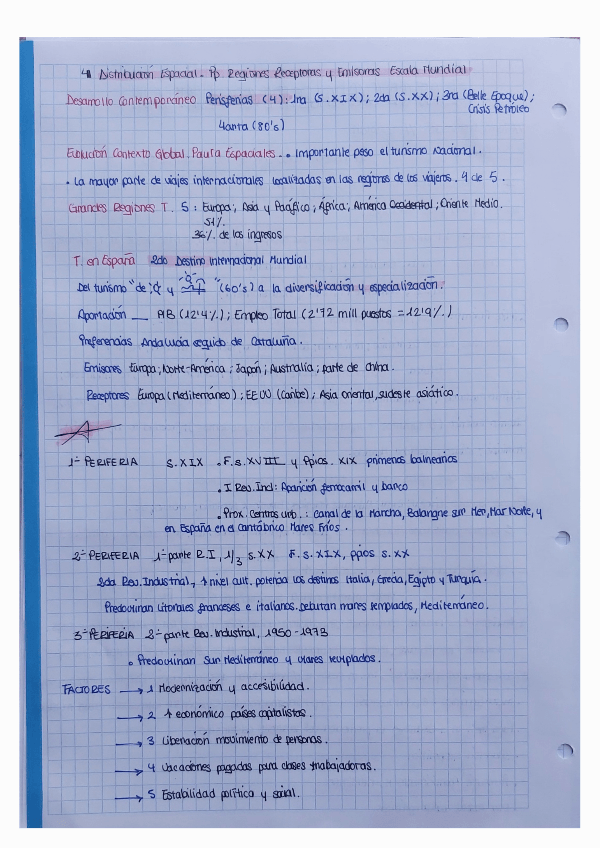 4 Distribución Espacial. Pp Regiones Receptoras y Emisoras Escala Mundial
Desarrollo Contemporáneo Perisferias (4): 1ra (S.XIX); 2da (S.XX); 3ra (Belle Epoque);
Crisis Petróleo
4arta (80's)
Evolución Contexto Global. Pauta Espaciales.. Importante peso el turismo Nacional.
• La mayor parte de viajes internacionales localizadas en las regiones de los viajeros. 4 de 5.
Grandes Regiones T. 5: Europa; Asia y Pacífico; África; América Occidental; Oriente Medio.
51%
36% de los ingresos
T. en España 2do Destino Internacional Mundial
Del turismo "de y " (60's) a la diversificación y especialización.
Aportación — PIB (12'4%); Empleo Total (2'72 mill puestos = 12'9%)
Preferencias Andalucía seguido de Cataluña.
Emisores Europa; Norte-América; Japón; Australia; parte de China.
Receptores Europa (Mediterráneo); EEUU (Caribe); Asia oriental, sudeste asiático.
1ª PERIFERIA S.XIX • F.s.XVIII y Ppios. XIX primeros balnearios
• I Rev.Ind: Aparición ferrocarril y barco
• Prox. Centros urb.: Canal de la Mancha, Balangne sur Mer, Mar Norte, y
en España en el Cantábrico Mares Fríos.
2ª PERIFERIA 1ª parte R.I, 1/3 S.XX F.s.XIX, ppios s.xx
2da Rev. Industrial, ↑ nivel cult. potencia los destinos Italia, Grecia, Egipto y Turquía.
Predominan Litorales franceses e italianos. Debutan mares templados, Mediterráneo.
3ª PERIFERIA 2ª parte Rev. Industrial, 1950-1973
• Predominan Sur Mediterráneo y mares templados.
FACTORES → 1 Modernización y accesibilidad.
→ 2 ↑ económico países capitalistas.
→ 3 Liberación movimiento de personas.
→ 4 Vacaciones pagadas para clases trabajadoras.
→ 5 Estabilidad política y social.